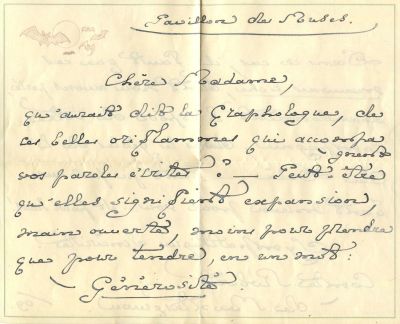 Pavillon des Muses.
Chère Madame,
qu'aurait dit la Graphologue, de
ces belles oriflammes qui accompa
gnent
vos paroles écrites ? — Peut-être
qu'elles signifient expansion,
main ouverte, moins pour prendre
que pour tendre, en un mot :
Générosité